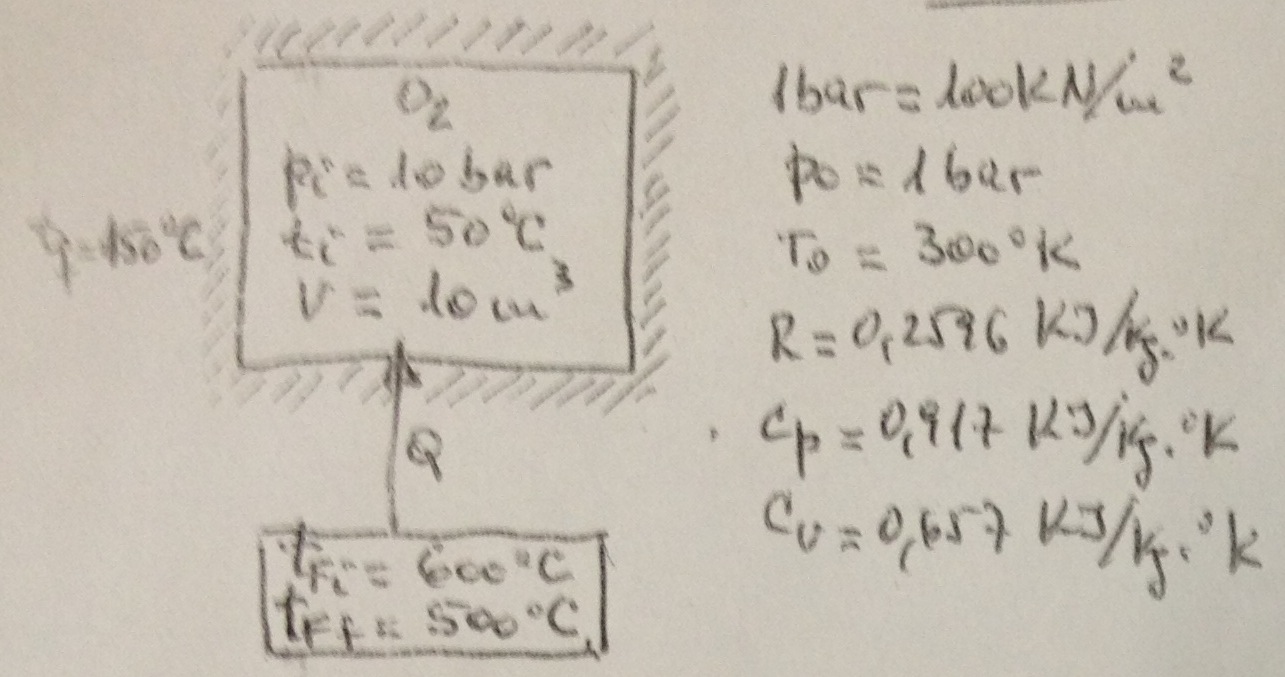 O₂
pi = 10 bar
ti = 50°C
V = 10 m³
tf = 150°C
Q
tFi = 600°C
tFf = 500°C
1 bar = 100 kN/m²
po = 1 bar
To = 300°K
R = 0,2596 KJ/kg.°K
Cp = 0,917 KJ/kg.°K
Cv = 0,657 KJ/kg.°K